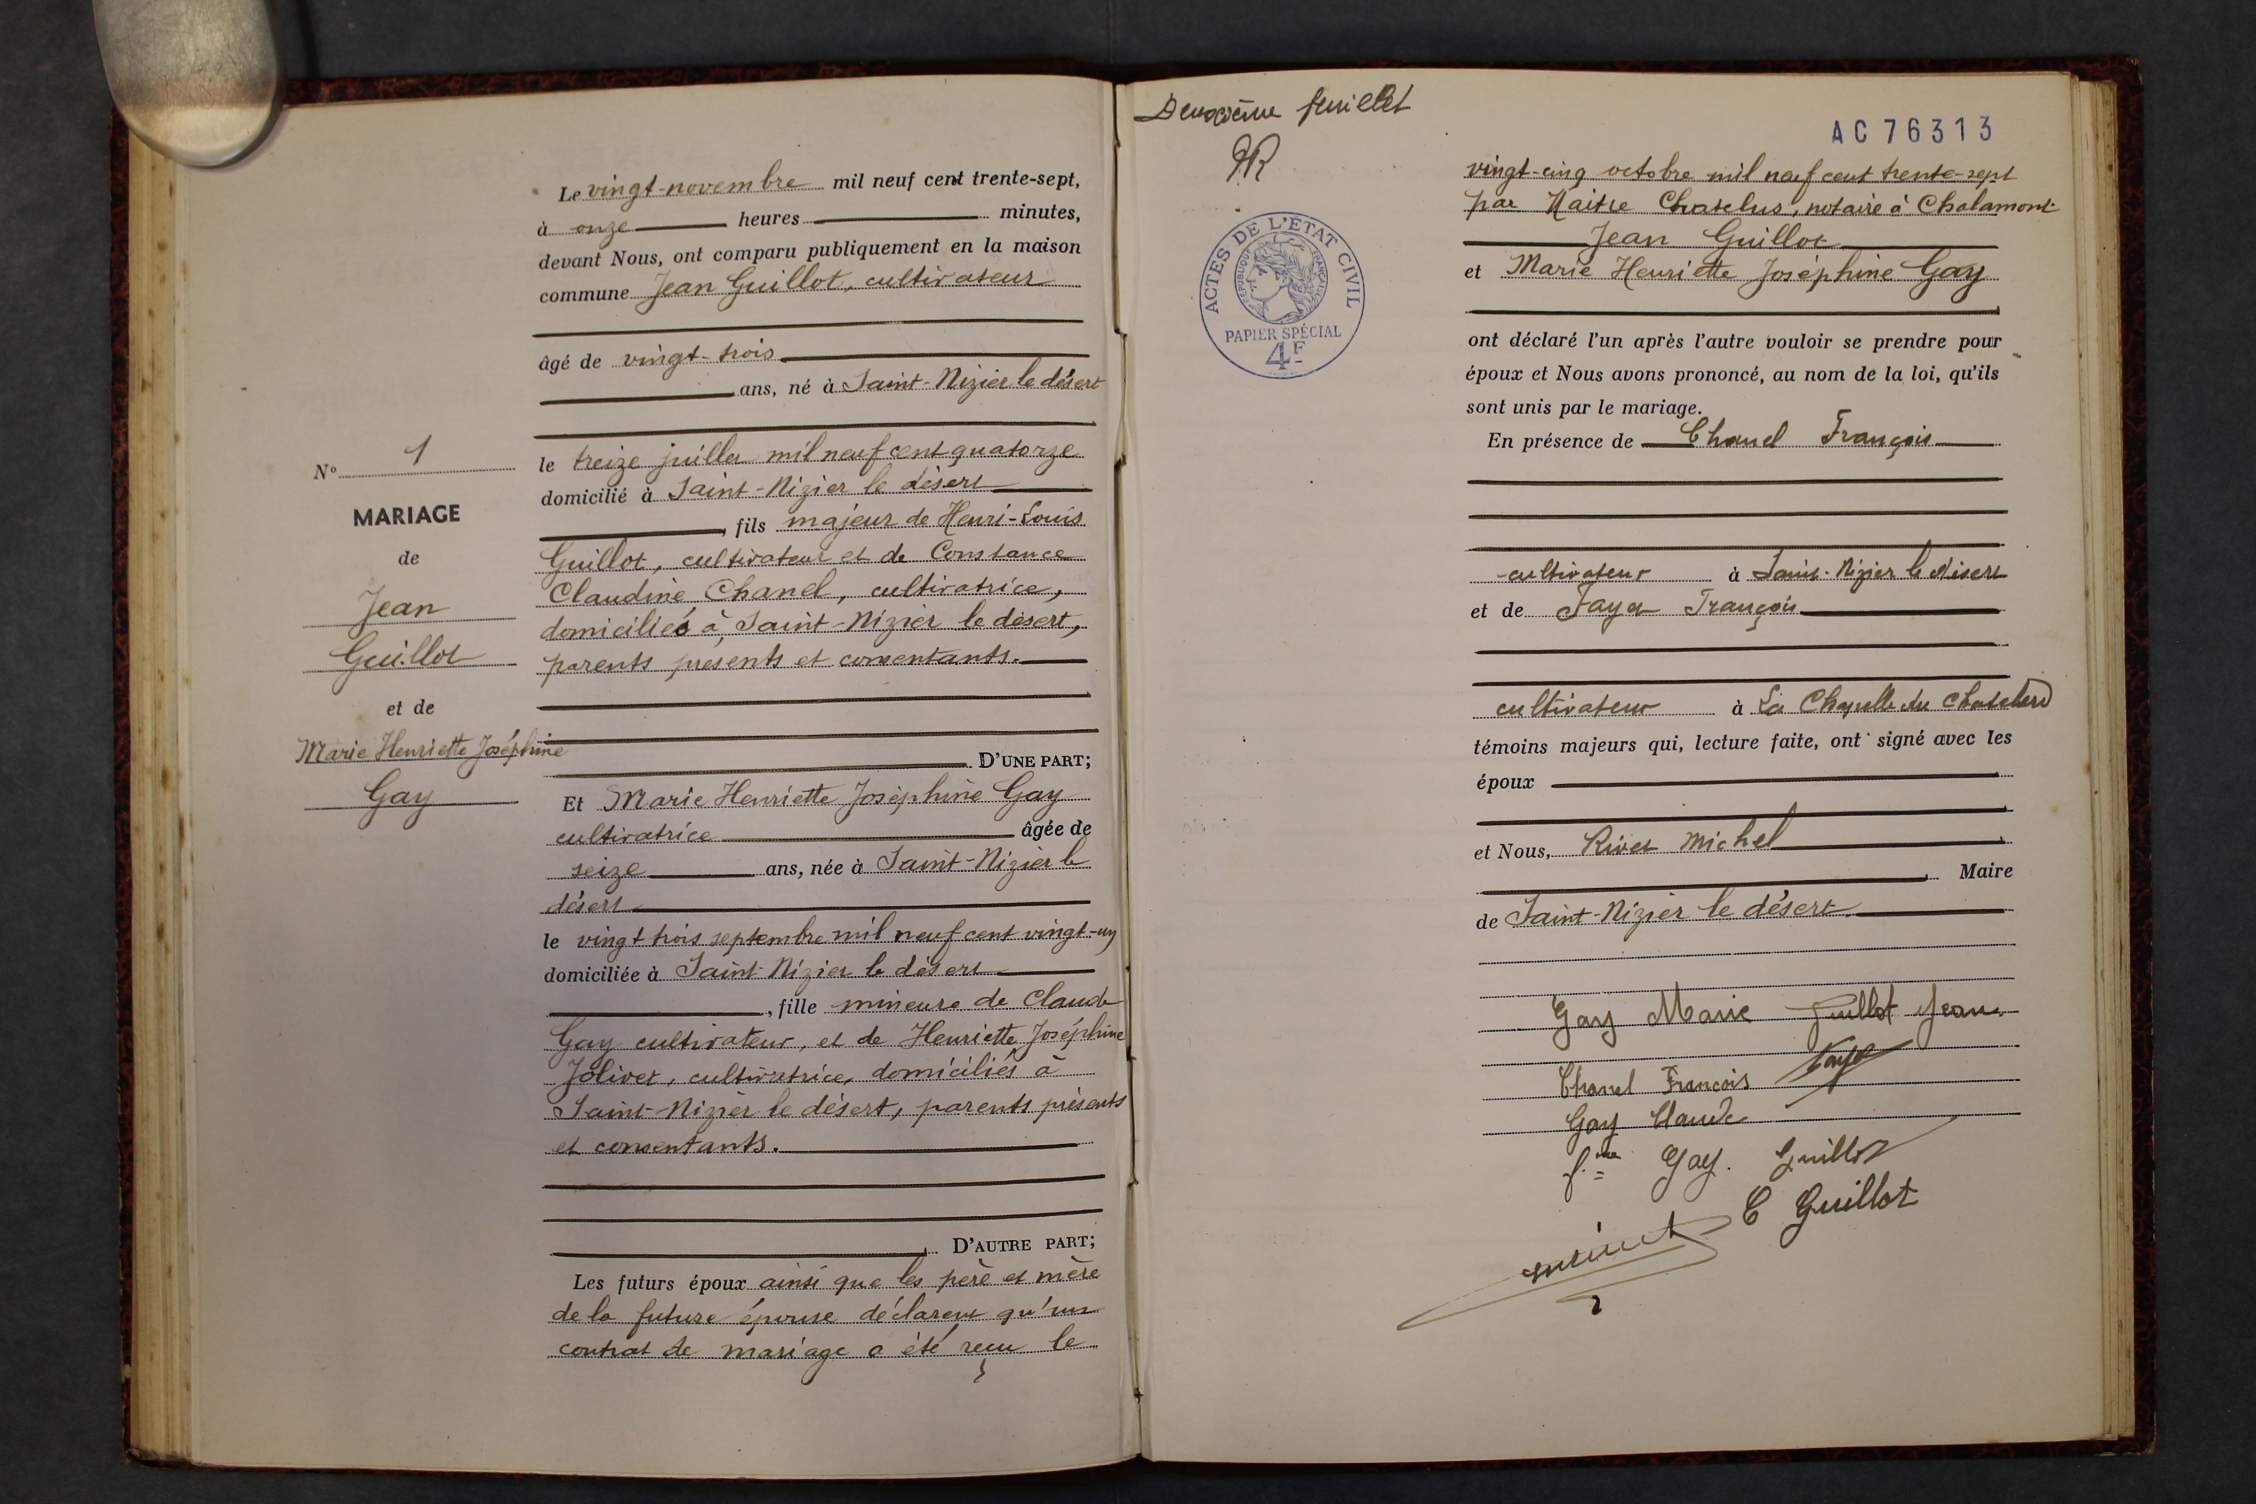 Le vingt-novembre mil neuf cent trente-sept,
à onze heures minutes,
devant Nous, ont comparu publiquement en la maison
commune Jean Guillot, cultivateur
âgé de vingt-trois
ans, né à Saint-Nizier le désert
le treize juillet mil neuf cent quatorze
domicilié à Saint-Nizier le désert
, fils majeur de Henri-Louis
Guillot, cultivateur et de Constance
Claudine Chanel, cultivatrice,
domiciliés à Saint-Nizier le désert,
parents présents et consentants.
D'UNE PART;
N° 1
MARIAGE
de
Jean
Guillot
et de
Marie Henriette Joséphine
Gay
Et Marie Henriette Joséphine Gay
cultivatrice âgée de
seize ans, née à Saint-Nizier le
désert
le vingt trois septembre mil neuf cent vingt-un
domiciliée à Saint-Nizier le désert
, fille mineure de Claude
Gay cultivateur, et de Henriette Joséphine
Jolivet, cultivatrice, domiciliés à
Saint-Nizier le désert, parents présents
et consentants.
D'AUTRE PART;
Les futurs époux ainsi que les père et mère
de la future épouse déclarent qu'un
contrat de mariage a été reçu le
Deuxième feuillet
AC 76313
ACTES DE L'ÉTAT CIVIL
RÉPUBLIQUE FRANÇAISE
PAPIER SPÉCIAL
4F
vingt-cinq octobre mil neuf cent trente-sept
par Maitre Chatelus, notaire à Chalamont
Jean Guillot
et Marie Henriette Joséphine Gay
ont déclaré l'un après l'autre vouloir se prendre pour
époux et Nous avons prononcé, au nom de la loi, qu'ils
sont unis par le mariage.
En présence de Chanel François
cultivateur à Saint-Nizier le Désert
et de Fayet François
cultivateur à La Chapelle du Chatelard
témoins majeurs qui, lecture faite, ont signé avec les
époux
et Nous, Rivet Michel
Maire
de Saint-Nizier le désert
Gay Marie Guillot Jean
Chanel François Fayet
Gay Claude
f.me Gay. Guillot
C Guillot